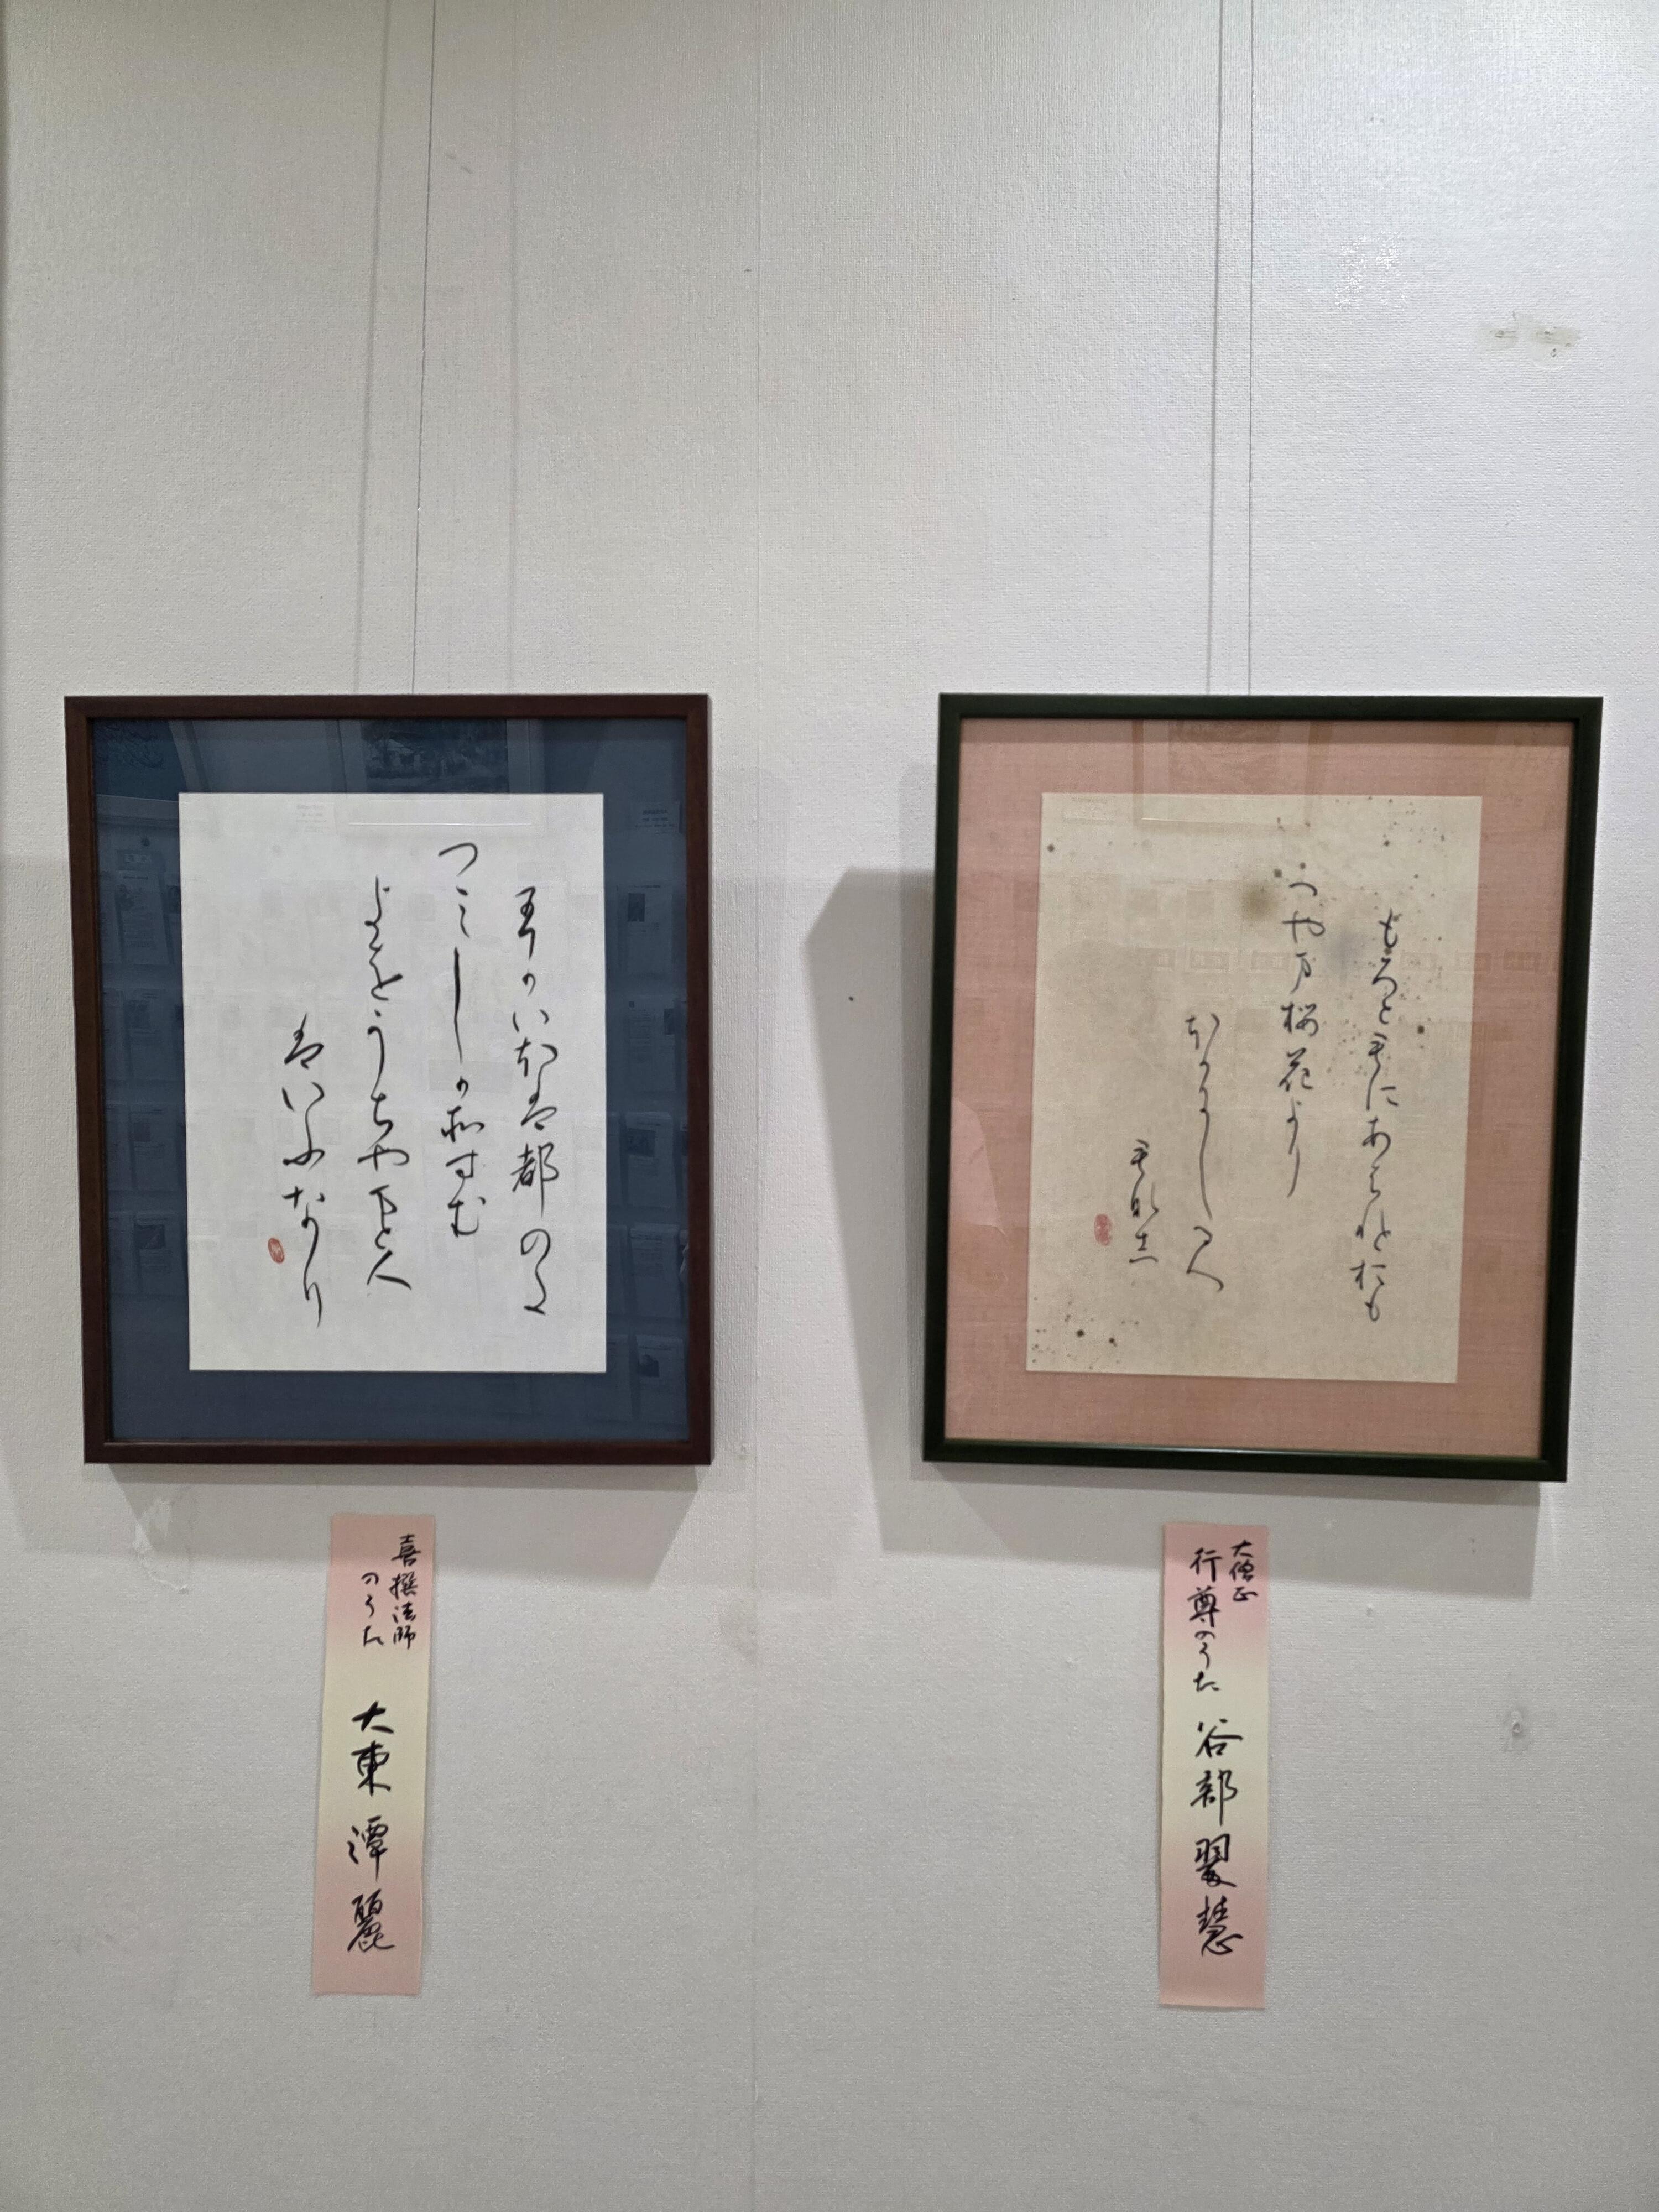 もろと毛にあはれとおも
へや万桜花より
ほかにしる人
毛那志
大僧正
行尊のうた 谷部翠慧
王かいほ者都のた
つミしか所すむ
よをうちやまと人
者いふなり
喜撰法師
のうた
大東潭麗